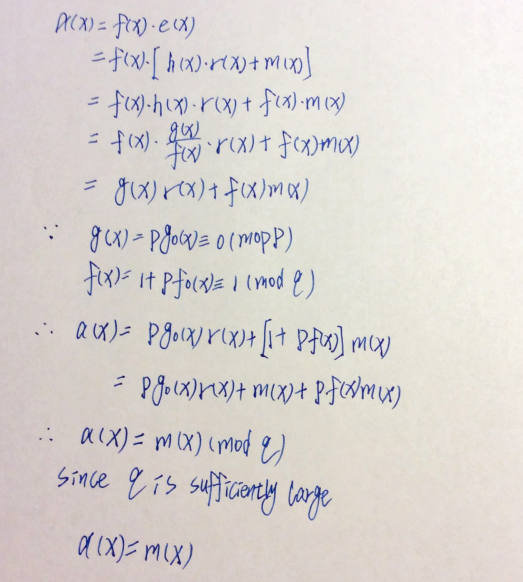 a(x) = f(x)·e(x)
= f(x)·[h(x)·r(x)+m(x)]
= f(x)·h(x)·r(x) + f(x)·m(x)
= f(x)·g(x)/f(x)·r(x) + f(x)m(x)
= g(x)r(x)+f(x)m(x)
∵ g(x) = pg₀(x) ≡ 0 (mop p)
f(x) = 1+pf₀(x) ≡ 1 (mod q)
∴ a(x) = pg₀(x)r(x)+[1+pf(x)]m(x)
= pg₀(x)r(x)+m(x)+pf(x)m(x)
∴ a(x) = m(x) (mod q)
since q is sufficiently large
a(x) = m(x)